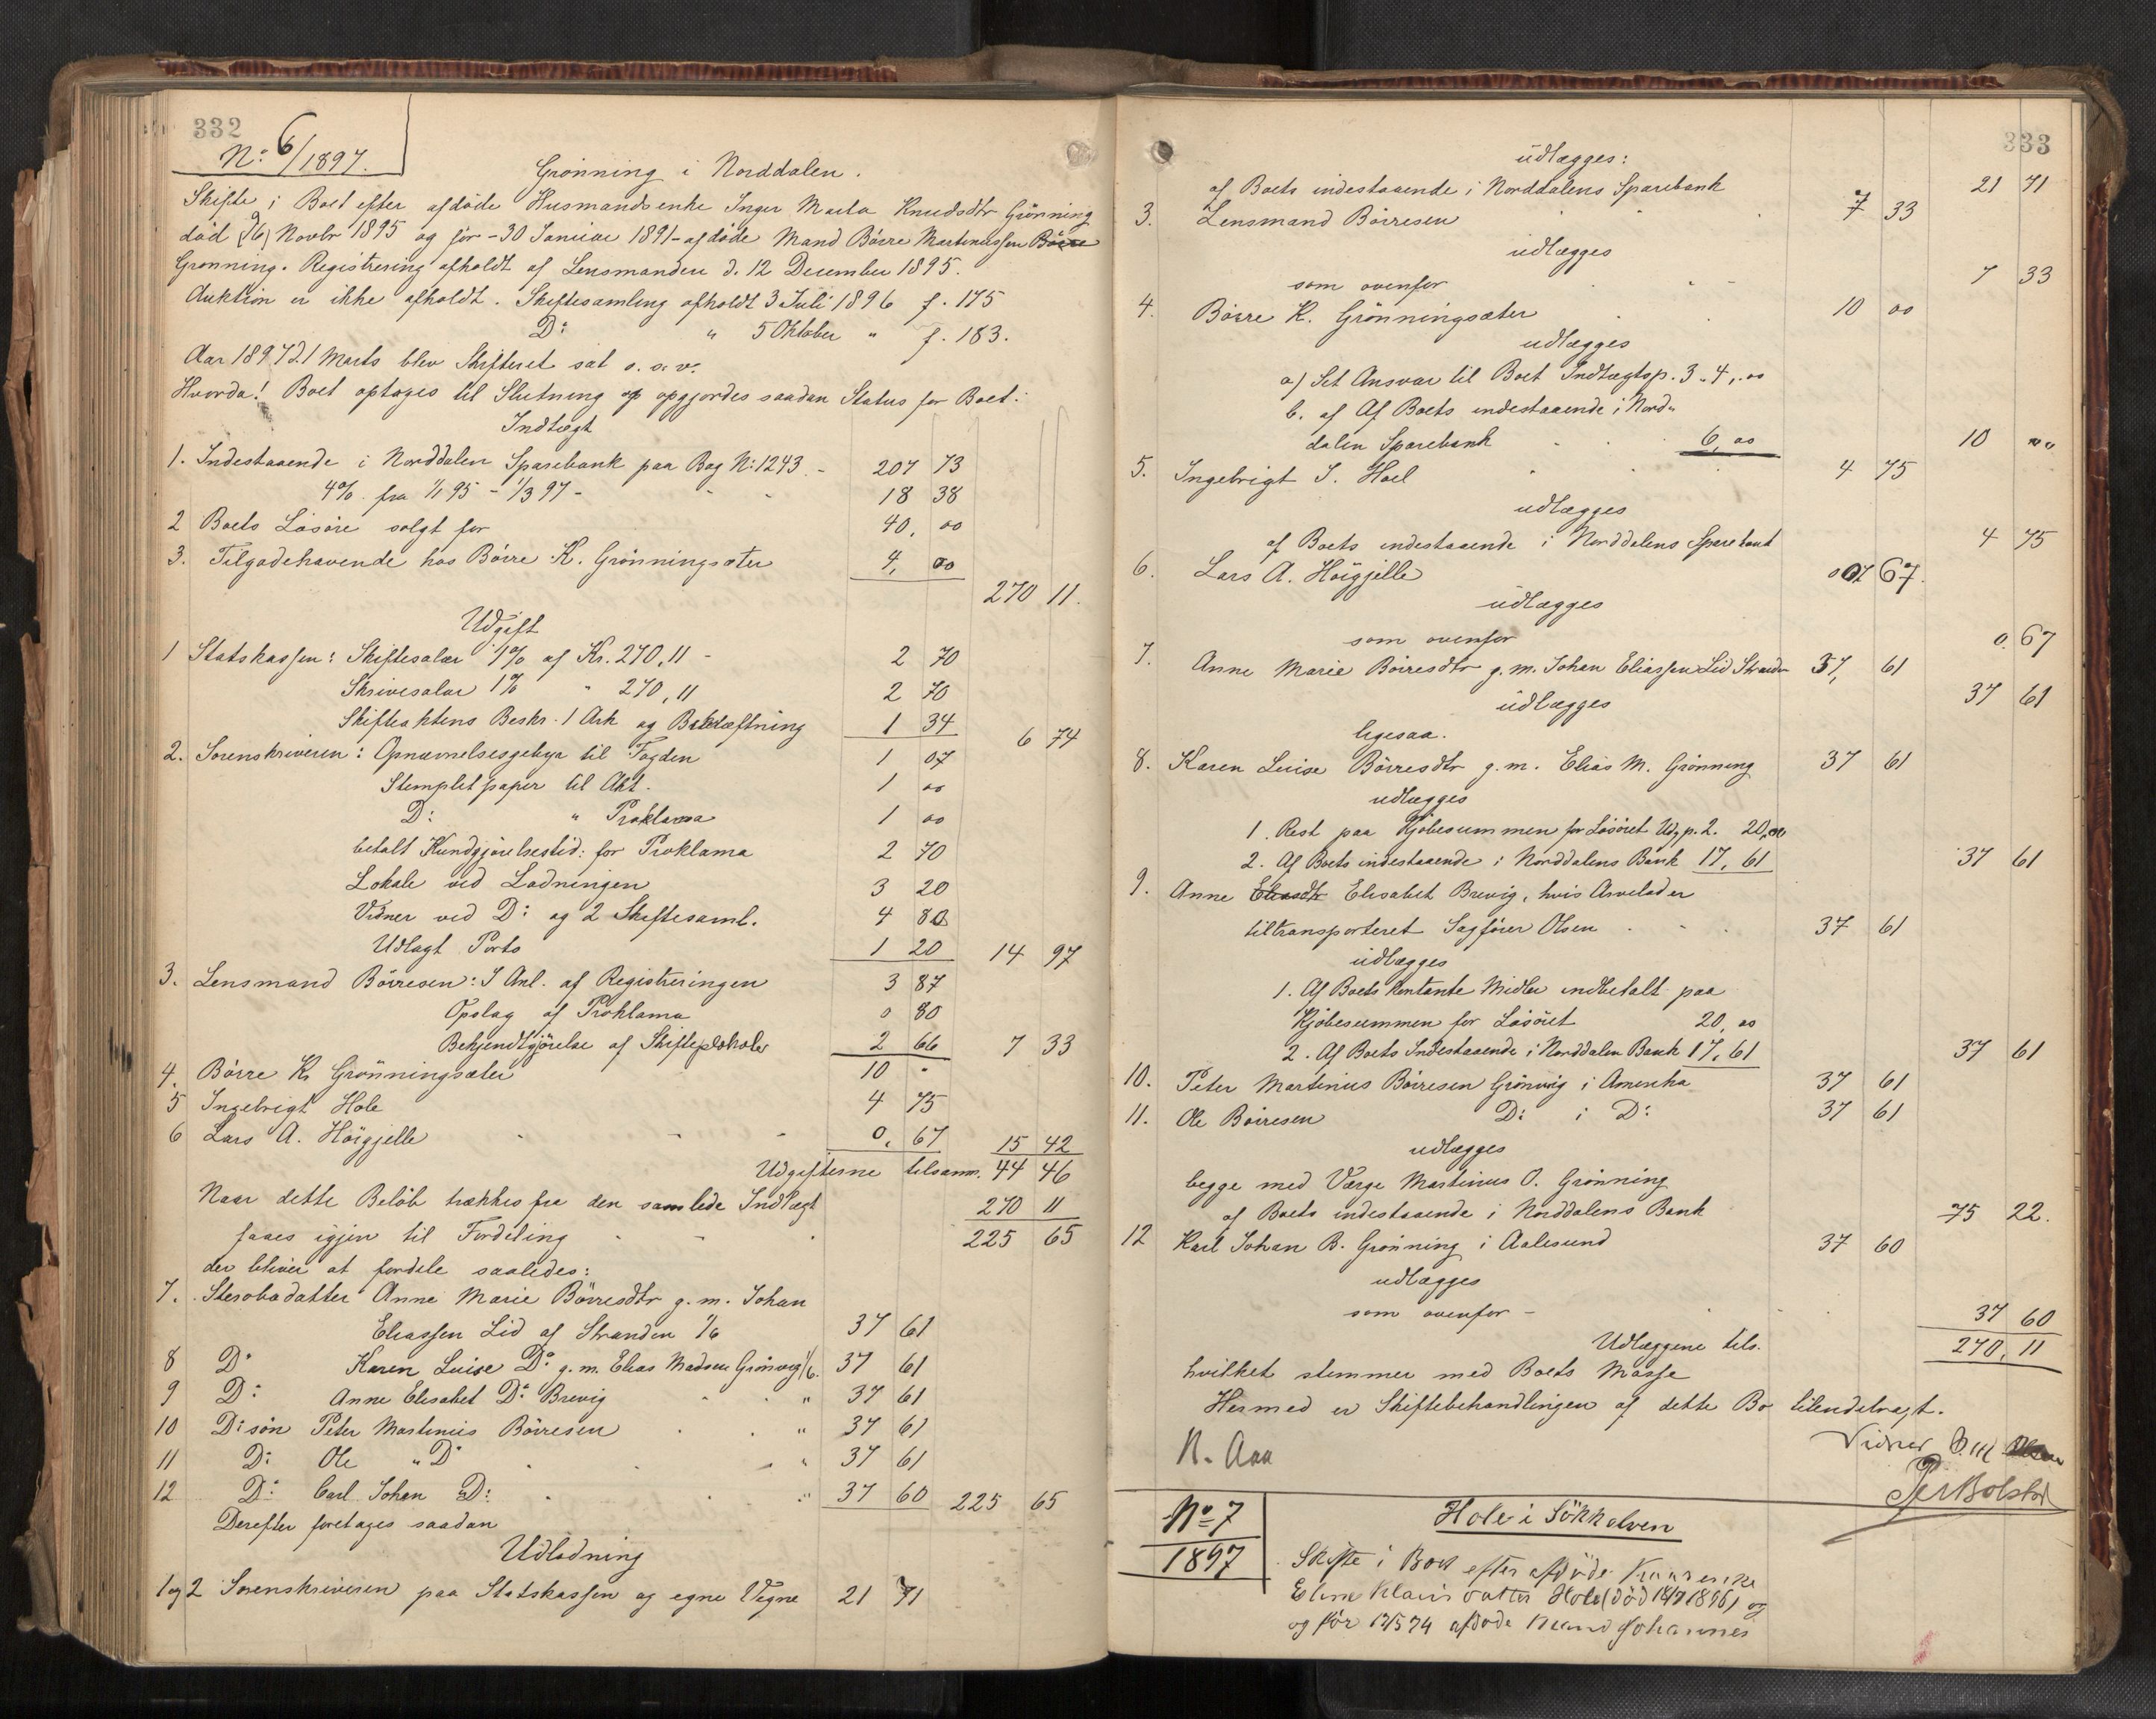 332
No: 6/1897.
Grønning i Norddalen.
Skifte i Boet efter afdøde Husmandsenke Inger Marta Knudsdtr Grönning
død (26) Novbr 1895 og før - 30 Januar 1891 - afdøde Mand Börre Martinussen
Grønning. Registrering afholdt af Lensmanden d. 12 December 1895.
Auktion er ikke afholdt. Skiftesamling afholdt 3 Juli 1896 f. 175
D: " 5 Oktober " f. 183.
Aar 1897 d. 1 Marts blev Skifteret sat o. s. v.
Hvorda! Boet optoges til Slutning og opgjordes saadan Status for Boet:
Indtægt
1. Indestaaende i Norddalen Sparebank paa Bog N: 1243 - 207 73
4% fra 1/1 95 - 1/3 97 - 18 38
2 Boets Løsøre solgt for 40, 00
3. Tilgodehavende hos Börre K. Grönningsæter 4, 00
270 11.
Udgift
1 Statskassen: Skiftesalær 1% af Kr. 270,11 - 2 70
Skrivesalær 1% " 270,11 2 70
Skifteaktens Beskr. 1 Ark og Bekræftning 1 34 6 74
2. Sorenskriveren: Opnævnelsesgebyr til Fogden 1 07
Stemplet papir til Akt. 1 00
D: " Proklama 1 00
betalt Kundgjørelsestid: for Proklama 2 70
Lokale ved Lodningen 3 20
Vidner ved D: og 2 Skiftesaml. 4 80
Udlagt Porto 1 20 14 97
3. Lensmand Börresen: I Anl. af Registreringen 3 87
Opslag af Proklama 0 80
Bekjendtgjörelse af Skifte 2 66 7 33
4. Börre K. Grönningsæter 10 -
5 Ingebrigt Hole 4 75
6 Lars A. Höigjelle 0, 67 15 42
Udgifterne tilsamm. 44 46
Naar dette Beløb trækkes fra den samlede Indtægt 270 11
faaes igjen til Fordeling 225 65
der bliver at fordele saaledes:
7. Sterbodatter Anne Marie Börresdtr g. m. Johan
Eliassen Lid af Stranden 1/6 37 61
8 D: Karen Luise D: g. m. Elias Madsen Grönning 1/6. 37 61
9 D: Anne Elisabet D: Brevig " 37 61
10 D: søn Peter Martinius Börresen " 37 61
11 D: Ole " D: " 37 61
12 D: Carl Johan D: " 37 60 225 65
Derefter foretages saadan
Udlodning
1 og 2 Sorenskriveren paa Statskassen og egne Vegne 21 71
333
udlægges:
af Boets indestaaende i Norddalens Sparebank 21 71
3. Lensmand Börresen 7 33
udlægges
som ovenfor 7 33
4. Börre K. Grönningsæter 10 00
udlægges
a) Sit Ansvar til Boet Indtægtsp. 3 „ 4,00
b. af Af Boets indestaaende i Nord-
dalen Sparebank 6,00 10 00
5. Ingebrigt J. Hoel 4 75
udlægges
af Boets indestaaende i Norddalens Sparebank 4 75
6. Lars A. Höigjelle 67.
udlægges
som ovenfor 0. 67
7. Anne Marie Börresdtr g. m. Johan Eliassen Lid Stranden 37, 61
udlægges 37 61
ligesaa.
8. Karen Luise Börresdtr g. m. Elias M. Grönning 37 61
udlægges
1. Rest paa Kjöbesummen for Løsøret Udg. p. 2. 20,00
2. Af Boets indestaaende i Norddalens Bank 17,61 37 61
9. Anne Eliasdtr Elisabet Brevig, hvis Arvelod er
tiltransporteret Sagfører Olsen 37 61
udlægges
1. Af Boets kontante Midler indbetalt paa
Kjøbesummen for Løsöret 20,00
2. Af Boets Indestaaende i Norddalen Bank 17,61 37 61
10. Peter Martinius Börresen Grönning i Amerika 37 61
11. Ole Börresen D: i D: 37 61
udlægges
begge med Værge Martinus O. Grönning
af Boets indestaaende i Norddalens Bank 75 22.
12 Karl Johan B. Grønning i Aalesund 37 60
udlægges
som ovenfor - 37 60
Udlæggene tils. 270, 11
hvilket stemmer med Boets Masse
Hermed er Skiftebehandlingen af dette Bo tilendebragt.
N. Aaa
Vidner
Per Bolstad
No 7
1897
Hole i Sökkelven
Skifte i Boet efter afdöde
Hole (död 18/7 1896) og
og før 12/5 74 afdöde Mand Johannes